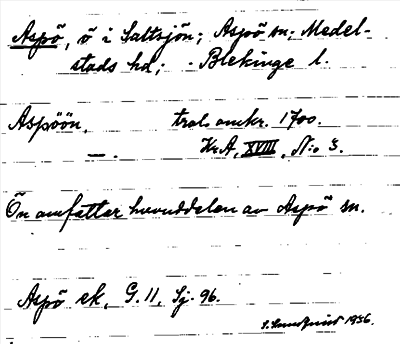 Aspö, ö i Saltsjön; Aspö sn; Medel-
stads hd; Blekinge l.
Aspöön, trol. omkr. 1700.
— . KrA, XVIII, N:o 3.
Ön omfattar huvuddelen av Aspö sn.
Aspö ek, G. 11, Sj. 96.
1936.